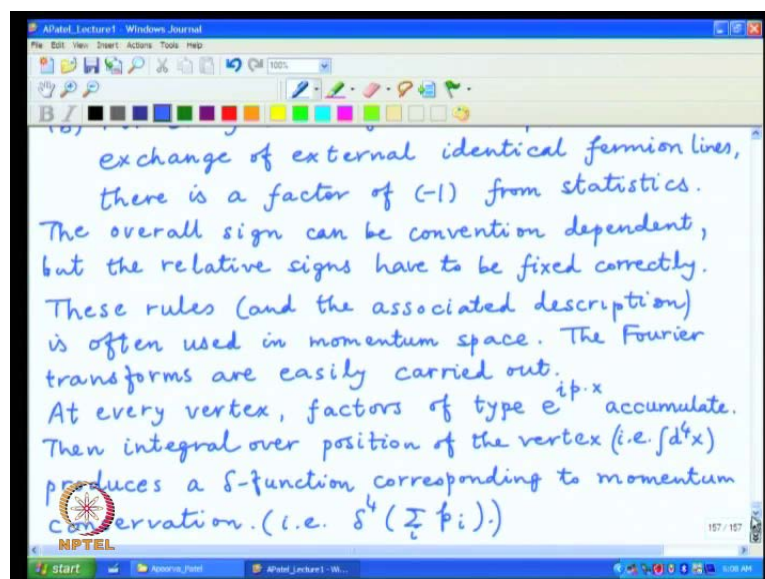 APatel_Lecture1 - Windows Journal
File Edit View Insert Actions Tools Help
100%
B I
exchange of external identical fermion lines,
there is a factor of (-1) from statistics.
The overall sign can be convention dependent,
but the relative signs have to be fixed correctly.
These rules (and the associated description)
is often used in momentum space. The Fourier
transforms are easily carried out.
At every vertex, factors of type e^{ip·x} accumulate.
Then integral over position of the vertex (i.e. ∫d⁴x)
produces a δ-function corresponding to momentum
conservation. (i.e. δ⁴(∑_i p_i).)
NPTEL
157 / 157
start Apoorva_Patel APatel_Lecture1 - Wi... 5:08 AM